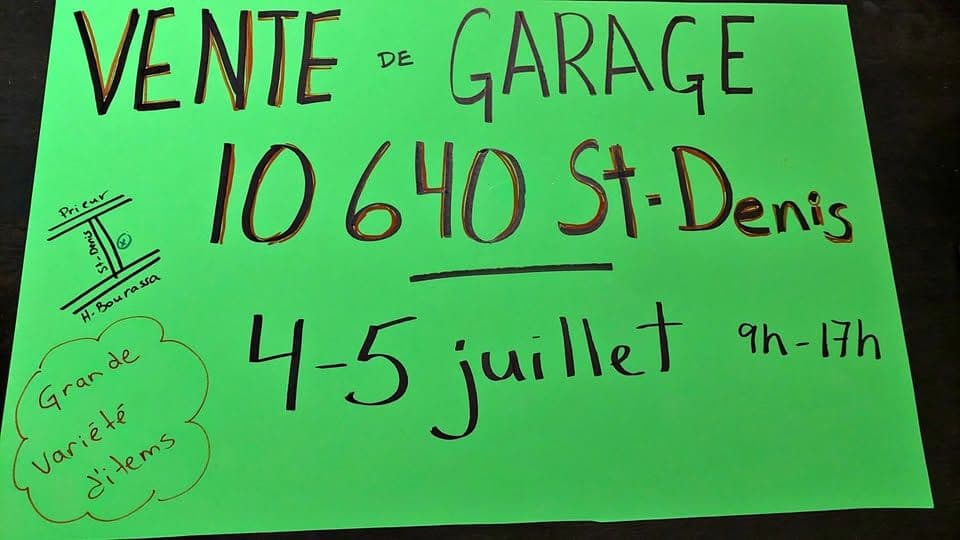 VENTE DE GARAGE
10 640 St-Denis
Prieur
St-Denis
H-Bourassa
4-5 juillet 9h-17h
Grande
variété
d'items